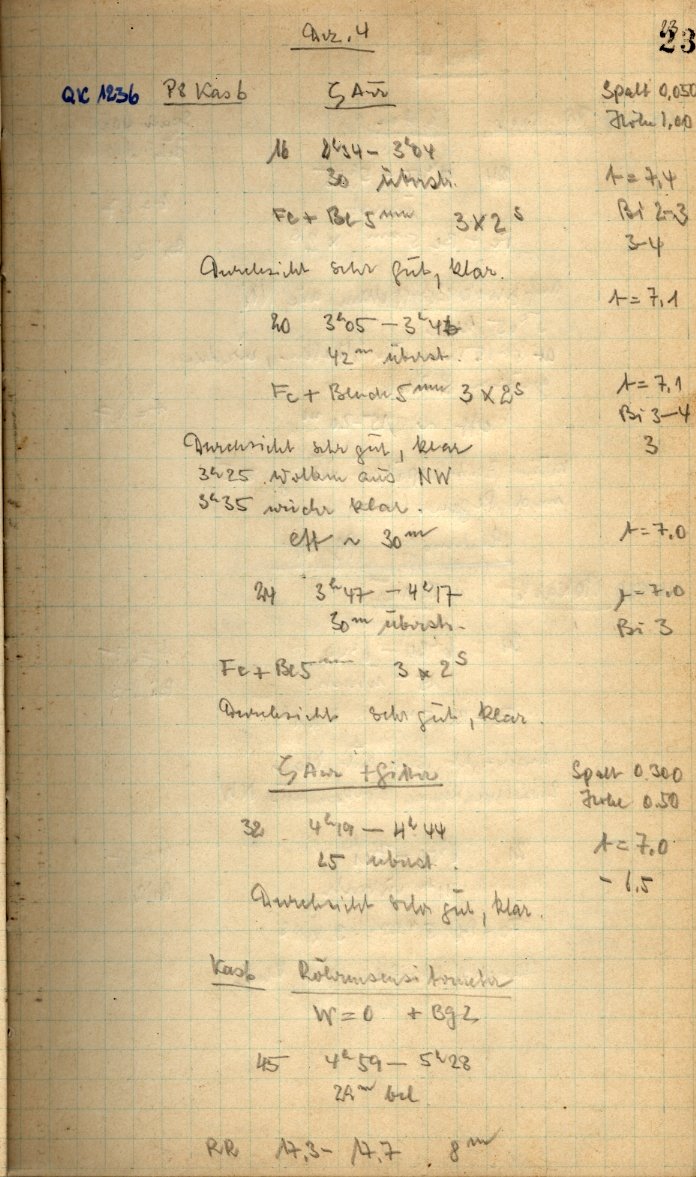 Dez. 4
23
23
QK 1236 P8 Kasb ζ Aur Spalt 0,050
Höhe 1,00
16 2h34 – 3h04
30 überst. t = 7,4
Fe + Be 5mm 3 x 2s Bi 2-3
3-4
Durchsicht sehr gut, klar.
t = 7,1
20 3h05 – 3h46
42m überst.
Fe + Blende 5mm 3 x 2s t = 7,1
Bi 3-4
Durchsicht sehr gut, klar 3
3h25 Wolken aus NW
3h35 wieder klar.
eff ~ 30m t = 7,0
24 3h47 – 4h17 t = 7,0
30m überst. Bi 3
Fe + Be 5mm 3 x 2s
Durchsicht sehr gut, klar.
ζ Aur + Gitter Spalt 0.300
Höhe 0.50
32 4h19 – 4h44
25 überst. t = 7,0
- 6,5
Durchsicht sehr gut, klar.
Kasb Röhrensensitometer
W = 0 + Bg 2
45 4h59 – 5h28
29m bel
RR 17,3 – 17,7 8m